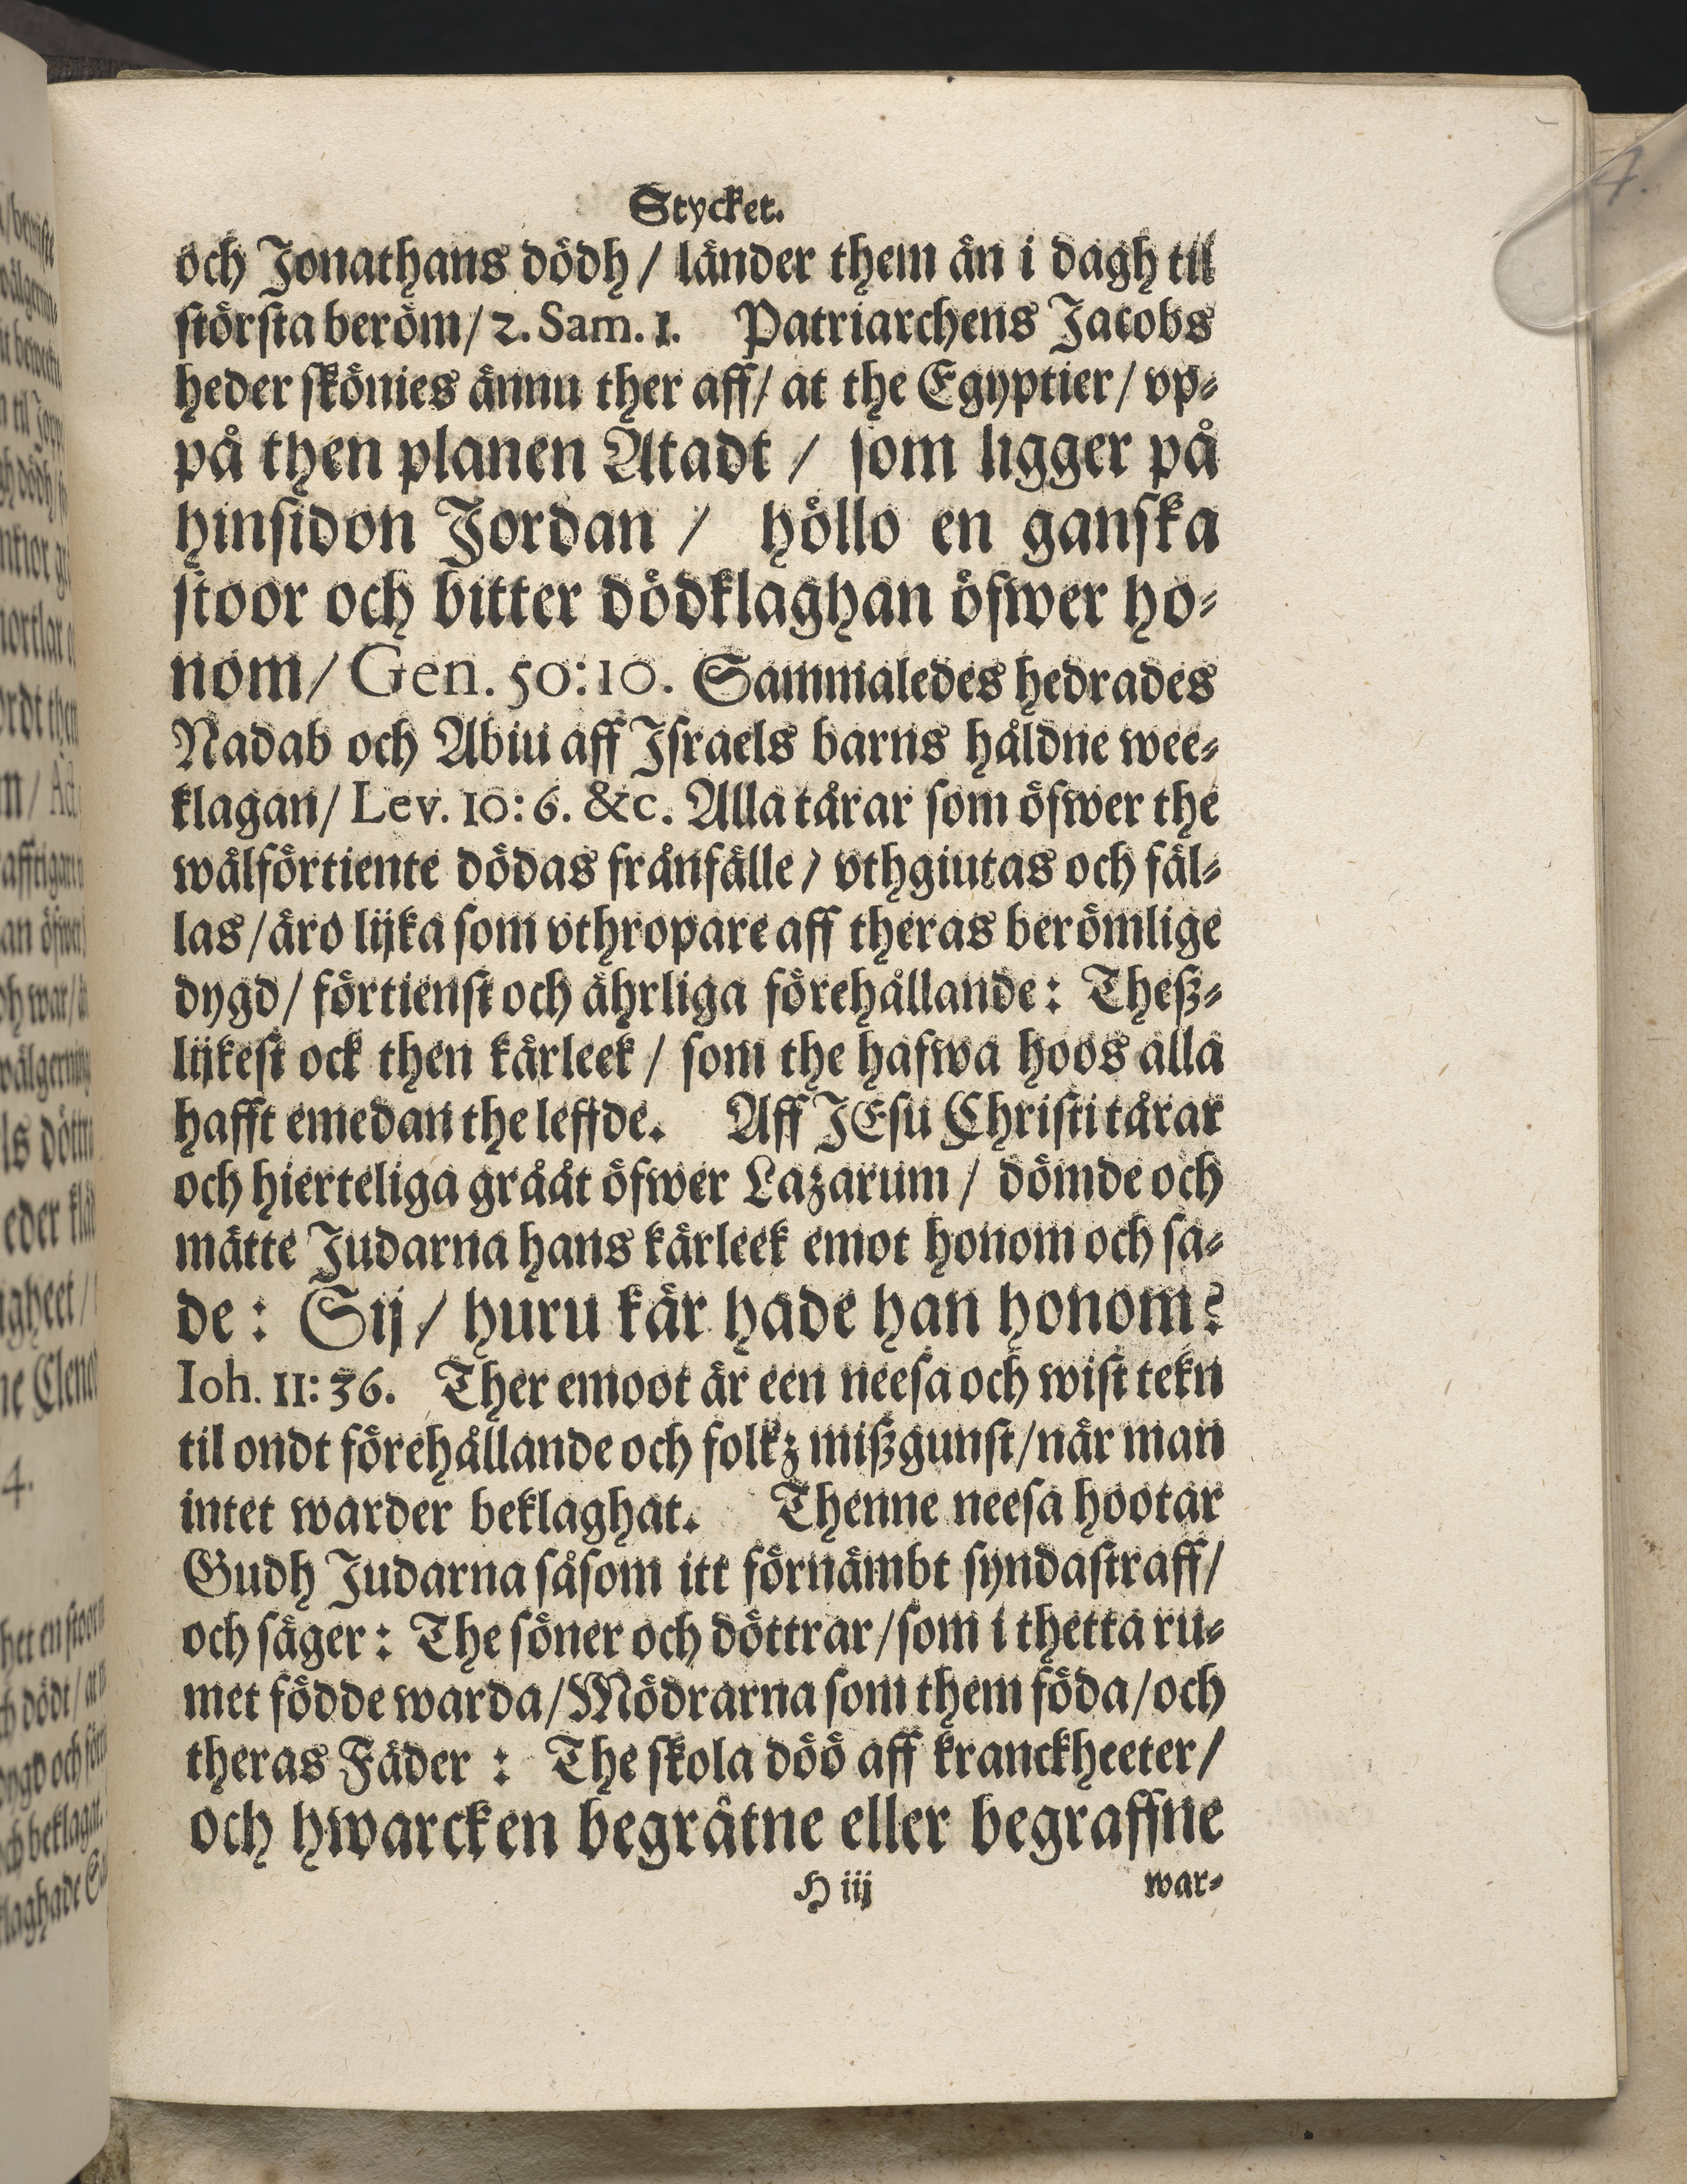 Stycket.
och Jonathans dödh / länder them än i dagh til
största beröm / 2. Sam. 1. Patriarchens Jacobs
heder skönies ännu ther aff / at the Egyptier / vp-
på then planen Atadt / som ligger på
hinsidon Jordan / höllo en ganska
stoor och bitter dödklaghan öfwer ho-
nom / Gen. 50:10. Sammaledes hedrades
Nadab och Abiu aff Israels barns håldne wee-
klagan / Lev. 10:6. &c. Alla tårar som öfwer the
wälförtiente dödas frånfälle / vthgiutas och fäl-
las / äro lijka som vthropare aff theras berömlige
dygd / förtienst och ährliga förehållande: Theß-
lijkest ock then kärleek / som the hafwa hoos alla
hafft emedan the leffde. Aff JEsu Christi tårar
och hierteliga grååt öfwer Lazarum / dömde och
mätte Judarna hans kärleek emot honom och sa-
de: Sij / huru kär hade han honom?
Ioh. 11:36. Ther emoot är een neesa och wist tekn
til ondt förehållande och folkz mißgunst / när man
intet warder beklaghat. Thenne neesa hootar
Gudh Judarna såsom itt förnämbt syndastraff /
och säger: The söner och döttrar / som i thetta ru-
met födde warda / Mödrarna som them föda / och
theras Fäder: The skola döö aff kranckheeter /
och hwarcken begråtne eller begraffne
H iij war-